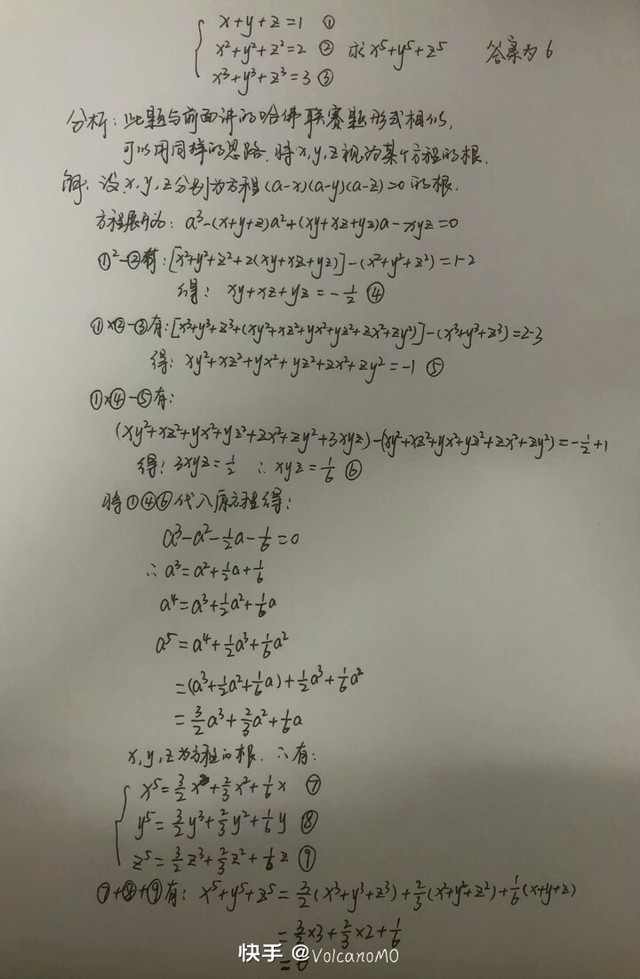 x+y+z=1 ①
x²+y²+z²=2 ② 求x⁵+y⁵+z⁵ 答案为6
x³+y³+z³=3 ③
分析:此题与前面讲的哈佛联赛题形式相似,
可以用同样的思路.将x,y,z视为某个方程的根.
解:设x,y,z分别为方程(a-x)(a-y)(a-z)=0的根.
方程展开为:a³-(x+y+z)a²+(xy+xz+yz)a-xyz=0
①²-②有:[x²+y²+z²+2(xy+xz+yz)]-(x²+y²+z²)=1-2
得: xy+xz+yz=-1/2 ④
①×②-③有:[x³+y³+z³+(xy²+xz²+yx²+yz²+zx²+zy²)]-(x³+y³+z³)=2-3
得: xy²+xz²+yx²+yz²+zx²+zy²=-1 ⑤
①×④-⑤有:
(xy²+xz²+yx²+yz²+zx²+zy²+3xyz)-(xy²+xz²+yx²+yz²+zx²+zy²)=-1/2+1
得:3xyz=1/2 ∴xyz=1/6 ⑥
将①④⑥代入原方程得:
a³-a²-1/2a-1/6=0
∴a³=a²+1/2a+1/6
a⁴=a³+1/2a²+1/6a
a⁵=a⁴+1/2a³+1/6a²
=(a³+1/2a²+1/6a)+1/2a³+1/6a²
=3/2a³+2/3a²+1/6a
x,y,z为方程的根.∴有:
x⁵=3/2x³+2/3x²+1/6x ⑦
y⁵=3/2y³+2/3y²+1/6y ⑧
z⁵=3/2z³+2/3z²+1/6z ⑨
⑦+⑧+⑨有: x⁵+y⁵+z⁵=3/2(x³+y³+z³)+2/3(x²+y²+z²)+1/6(x+y+z)
=3/2×3+2/3×2+1/6
=6
快手 @VolcanoMO